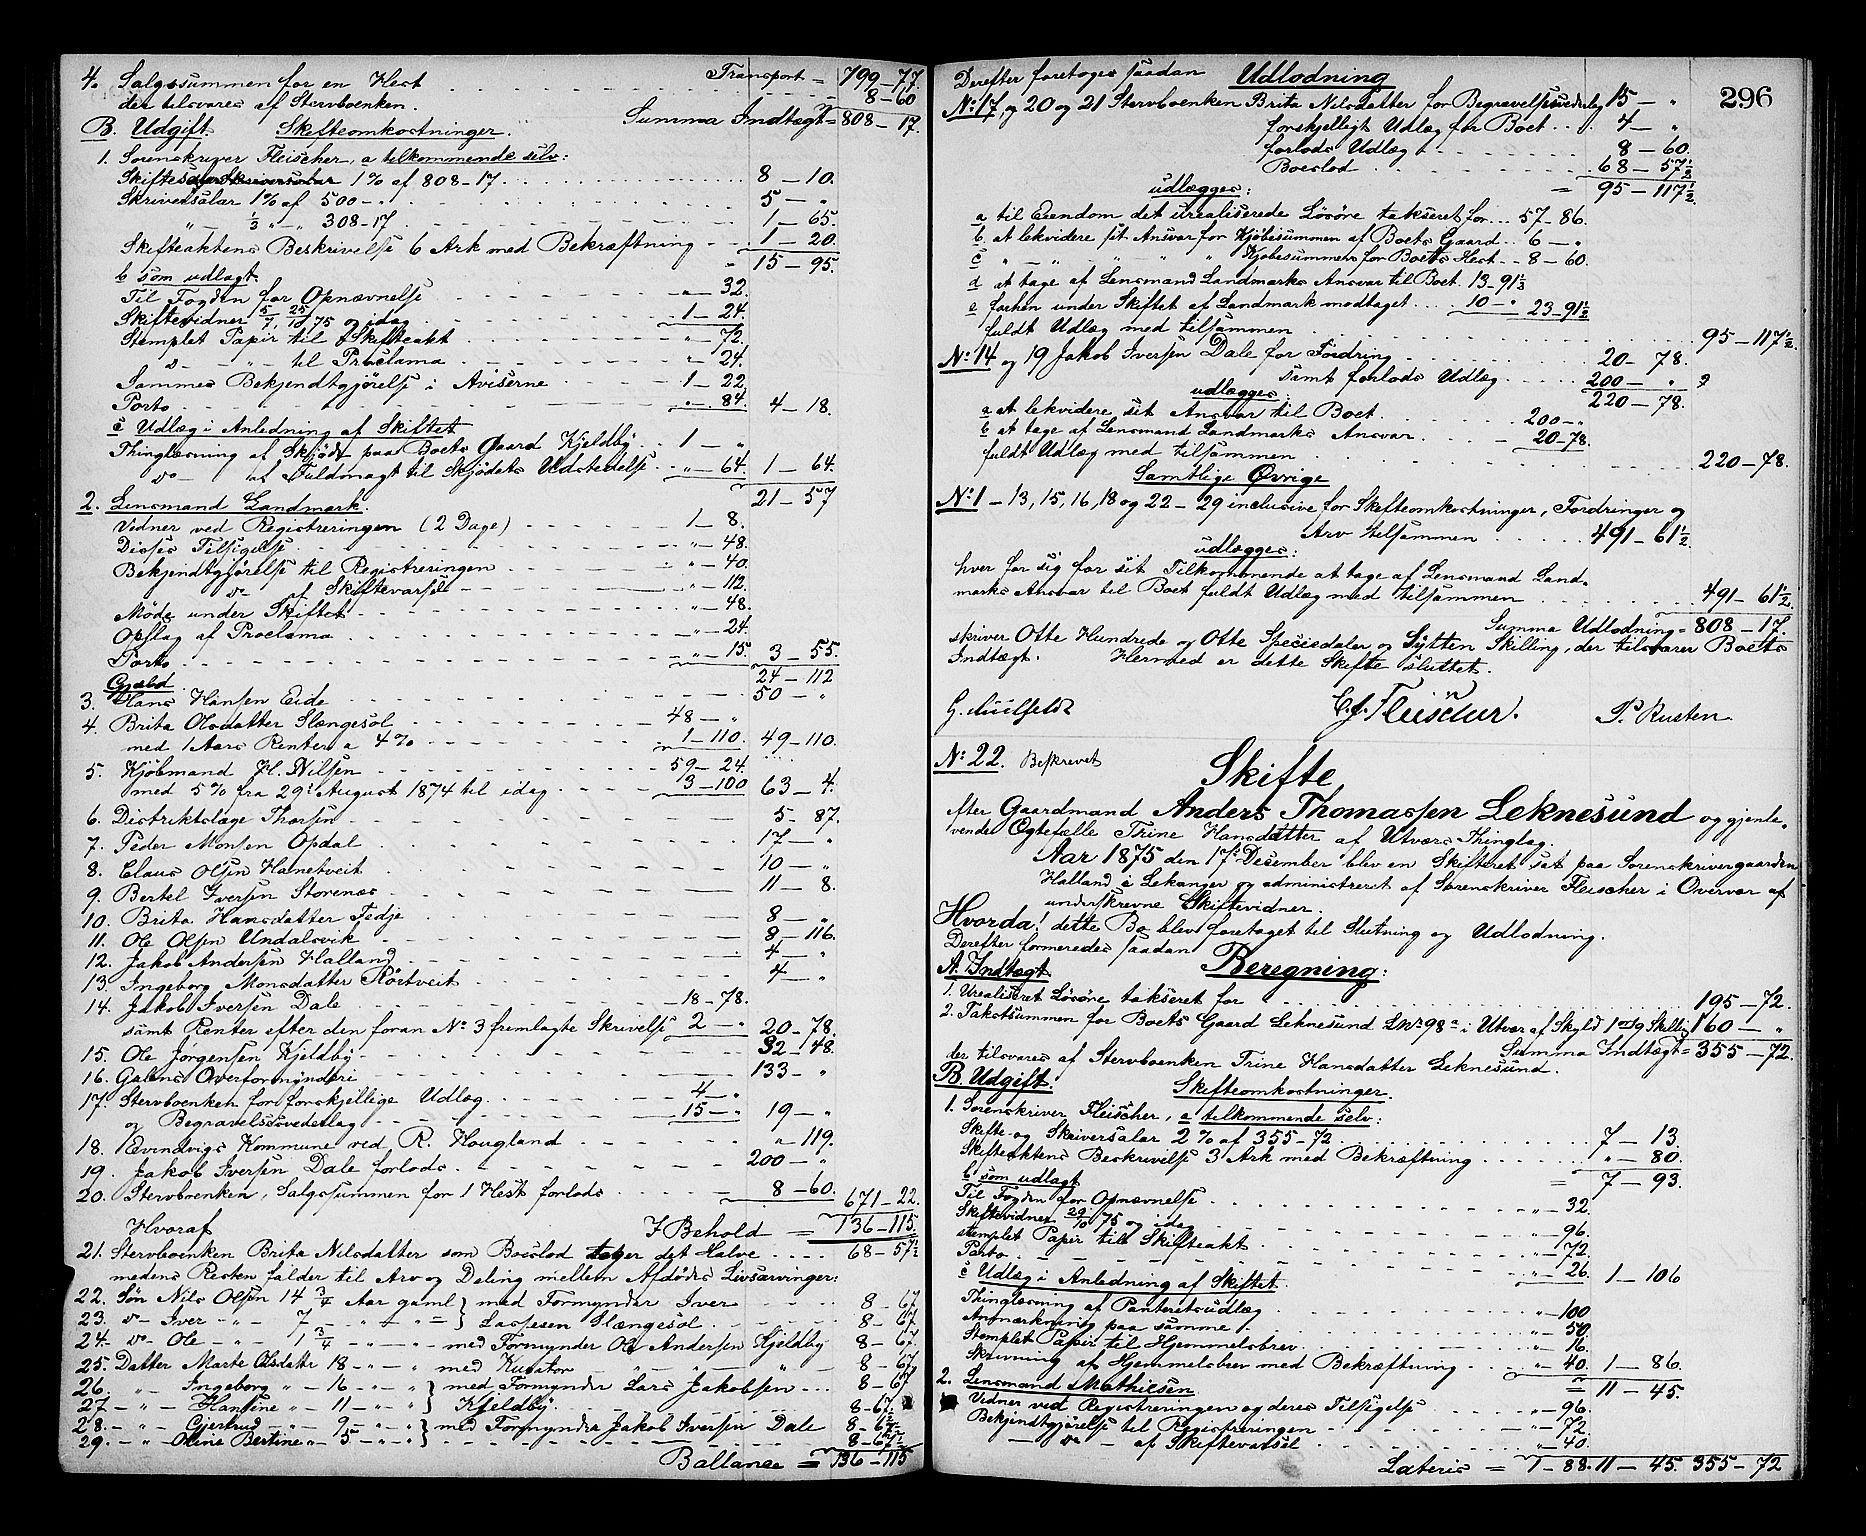 Transport = 799 – 77.
4. Salgssummen for en Hest . . . 8 – 60
der tilsvares af Stervboenken. Summa Indtægt = 808 – 17.
B. Udgift Skifteomkostninger.
1. Sorenskriver Fleischer, a tilkommende selv:
Skiftesalar 1% af 808 – 17 . . . 8 – 10.
Skriversalar 1% af 500 – „ . . . 5 – „
„ – ½ „ – „ 308 – 17 . . . 1 – 65.
Skifteaktens Beskrivelse 6 Ark med Bekræftning . . 1 – 20.
15 – 95.
b som udlagt.
Til Fogden for Opnævnelse . . . „ – 32.
Skiftevidner 5/7, 25/10 75 og idag . . . 1 – 24.
Stemplet Papir til Skifteakt . . . „ – 72.
do – „ til Proclama . . . „ – 24.
Sammes Bekjendtgjørelse i Aviserne . . 1 – 22.
Porto . . . „ – 84. 4 – 18.
c Udlæg i Anledning af Skiftet
Thinglæsning af Skjøde paa Boets Gaard Kjeldby . . 1 – „
do – af Fuldmagt til Skjødets Udstedelse . . „ – 64. 1 – 64.
21 – 57
2. Lensmand Landmark.
Vidner ved Registreringen (2 Dage) . . . 1 – 8.
Disses Tilsigelse . . . „ – 48.
Bekjendtgjørelse til Registreringen . . . „ – 40.
do – af Skiftevarsel . . . „ – 112.
Møde under Skiftet . . . „ – 48.
Opslag af Proclama . . . „ – 24.
Porto . . . „ – 15. 3 – 55.
24 – 112
Gjæld
3. Hans Hansen Eide . . . 50 – „
4. Brita Olsdatter Slængesol . . . 48 – „
med 1 Aars Renter a 4% . . . 1 – 110. 49 – 110.
5. Kjøbmand H. Nilsen . . . 59 – 24.
med 5% fra 29. August 1874 til idag . . . 3 – 100 63 – 4.
6. Distriktslæge Thorsen . . . 5 – 87.
7. Peder Monsen Opdal . . . 17 – „
8. Claus Olsen Hametveit . . . 10 – „
9. Bertel Iversen Storenæs . . . 11 – 8.
10. Brita Hansdatter Fedje . . . 8 – „
11. Ole Olsen Undalsvik . . . 8 – 116.
12. Jakob Andersen Halland . . . 4 – „
13. Ingeborg Monsdatter Rörtveit . . . 4 – „
14. Jakob Iversen Dale . . . 18 – 78.
samt Renter efter den foran No 3 fremlagte Skrivelse 2 – „ 20 – 78.
15. Ole Jørgensen Kjeldby . . . 32 – 48.
16. Gulens Overformynderi . . . 133 – „
17. Stervboenken for forskjellige Udlæg . . . 4 – „
og Begravelsesvederlag . . . 15 – „ 19 – „
18. Evindvigs Kommune ved R. Hougland . . . „ – 119.
19. Jakob Iversen Dale forlods . . . 200 – „
20. Stervboenken, Salgssummen for 1 Hest forlods . . . 8 – 60. 671 – 22.
Hvoraf I Behold = 136 – 115.
21. Stervboenken Brita Nilsdatter som Boeslod tager det Halve . . . 68 – 57½
medens Resten falder til Arv og Deling mellem Afdødes Livsarvinger:
22. Søn Nils Olsen 14 ¾ Aar gaml } med Formynder Iver . . . 8 – 67.
23. do – Iver – „ – 7 – „ – „ – } Larsesen Slængesol . . . 8 – 67.
24. do – Ole – „ – 1 ¾ – „ – „ – med Formynder Ole Andersen Kjeldby 8 – 67.
25. Datter Marte Olsdattr 18 – „ – „ med Kurator – „ – „ – „ 8 – 67.
26. „ – Ingeborg „ – 16 – „ – „ } med Formynder Lars Jakobsen . . . 8 – 67.
27 – „ – Hansine – „ – 11 – „ – „ } Kjeldby . . . 8 – 67.
28. – „ – Gjertrud – „ – 9 – „ – „ } med Formynder Jakob Iversen Dale 8 – 67½
29. – „ – Oline Bertine „ – 5 – „ – „ } . . . 8 – 67½
Ballance = 136 – 115
296
Derefter foretoges saadan Udlodning
No 17, og 20 og 21 Stervboenken Brita Nilsdatter for Begravelsesvederlag 15 – „
forskjelligt Udlæg for Boet . . . 4 – „
forlods Udlæg . . . 8 – 60.
Boeslod . . . 68 – 57½
udlægges: = 95 – 117½
a til Eiendom det urealiserede Løsöre takseret for . . 57 – 86.
b at lekvidere sit Ansvar for Kjøbesummen af Boets Gaard . . 6 – „
c „ – „ – „ „ „ Kjøbesummen for Boets Hest . . 8 – 60.
d at tage af Lensmand Landmarks Ansvar til Boet 13 – 91½
e forhen under Skiftet af Landmark modtaget . . . 10 – „ 23 – 91½
fuldt Udlæg med tilsammen . . . 95 – 117½.
No 14 og 19 Jakob Iversen Dale for Fordring . . . 20 – 78.
samt forlods Udlæg . . . 200 – „
udlægges: 220 – 78.
a at lekvidere sit Ansvar til Boet . . . 200 – „
b at tage af Lensmand Landmarks Ansvar . . . 20 – 78.
fuldt Udlæg med tilsammen . . . 220 – 78.
Samtlige Øvrige
No 1 – 13, 15, 16, 18 og 22 – 29 inclusive for Skifteomkostninger, Fordringer og
Arv tilsammen . . . 491 – 61½
udlægges:
hver for sig for sit Tilkommende at tage af Lensmand Land-
marks Ansvar til Boet fuldt Udlæg med tilsammen . . . 491 – 61½.
Summa Udlodning = 808 – 17.
skriver Otte Hundrede og Otte Speciesdaler og Sytten Skilling, der tilsvarer Boets
Indtægt. Hermed er dette Skifte sluttet.
CJ. Fleischer. P. Rusten
No 22. Beskrevet
Skifte
efter Gaardmand Anders Thomassen Leknesund og gjenle-
vende Ægtefælle Trine Hansdatter af Utvær Thinglag.
Aar 1875 den 17. Desember blev en Skifteret sat paa Sorenskrivergaarden
Halland i Lekanger og administreret af Sorenskriver Fleischer i Overvær af
underskrevne Skiftevidner.
Hvorda! dette Bo blev foretaget til Slutning og Udlodning.
Derefter formeredes saadan
A. Indtægt Beregning:
1. Urealiseret Løsöre takseret for . . . 195 – 72.
2. Takstsummen for Boets Gaard Leknesund LNo 98 a i Utvær af Skyld 1 ort 9 Skilling 160 – „
Summa Indtægt = 355 – 72.
der tilsvares af Stervboenken Trine Hansdatter Leknesund.
B. Udgift. Skifteomkostninger.
1. Sorenskriver Fleischer, a tilkommende selv:
Skifte- og Skriversalar 2% af 355 – 72 . . . 7 – 13.
Skifteaktens Beskrivelse 3 Ark med Bekræftning . . . „ – 80.
b som udlagt = 7 – 93.
Til Fogden for Opnævnelse . . . „ – 32.
Skiftevidner 29/10 75 og idag . . . „ – 96.
stemplet Papir til Skifteakt . . . „ – 72.
Porto . . . „ – 26. 1 – 106
c Udlæg i Anledning af Skiftet.
Thinglæsning af Panteretsudlæg . . . „ – 100
Anmærkning paa samme . . . „ – 50.
Stemplet Papir til Hjemmelsbrev . . . „ – 16.
Skrivning af Hjemmelsbrev med Bekræftning . . . „ – 40. 1 – 86.
2. Lensmand Mathiesen = 11 – 45.
Vidner ved Registreringen og deres Tilsigelse . . . „ – 96.
Bekjendtgjørelse til Registreringen . . . „ – 72.
– do – af Skiftevarsel . . . „ – 40.
Lateris = 1 – 88. 11 – 45. 355 – 72